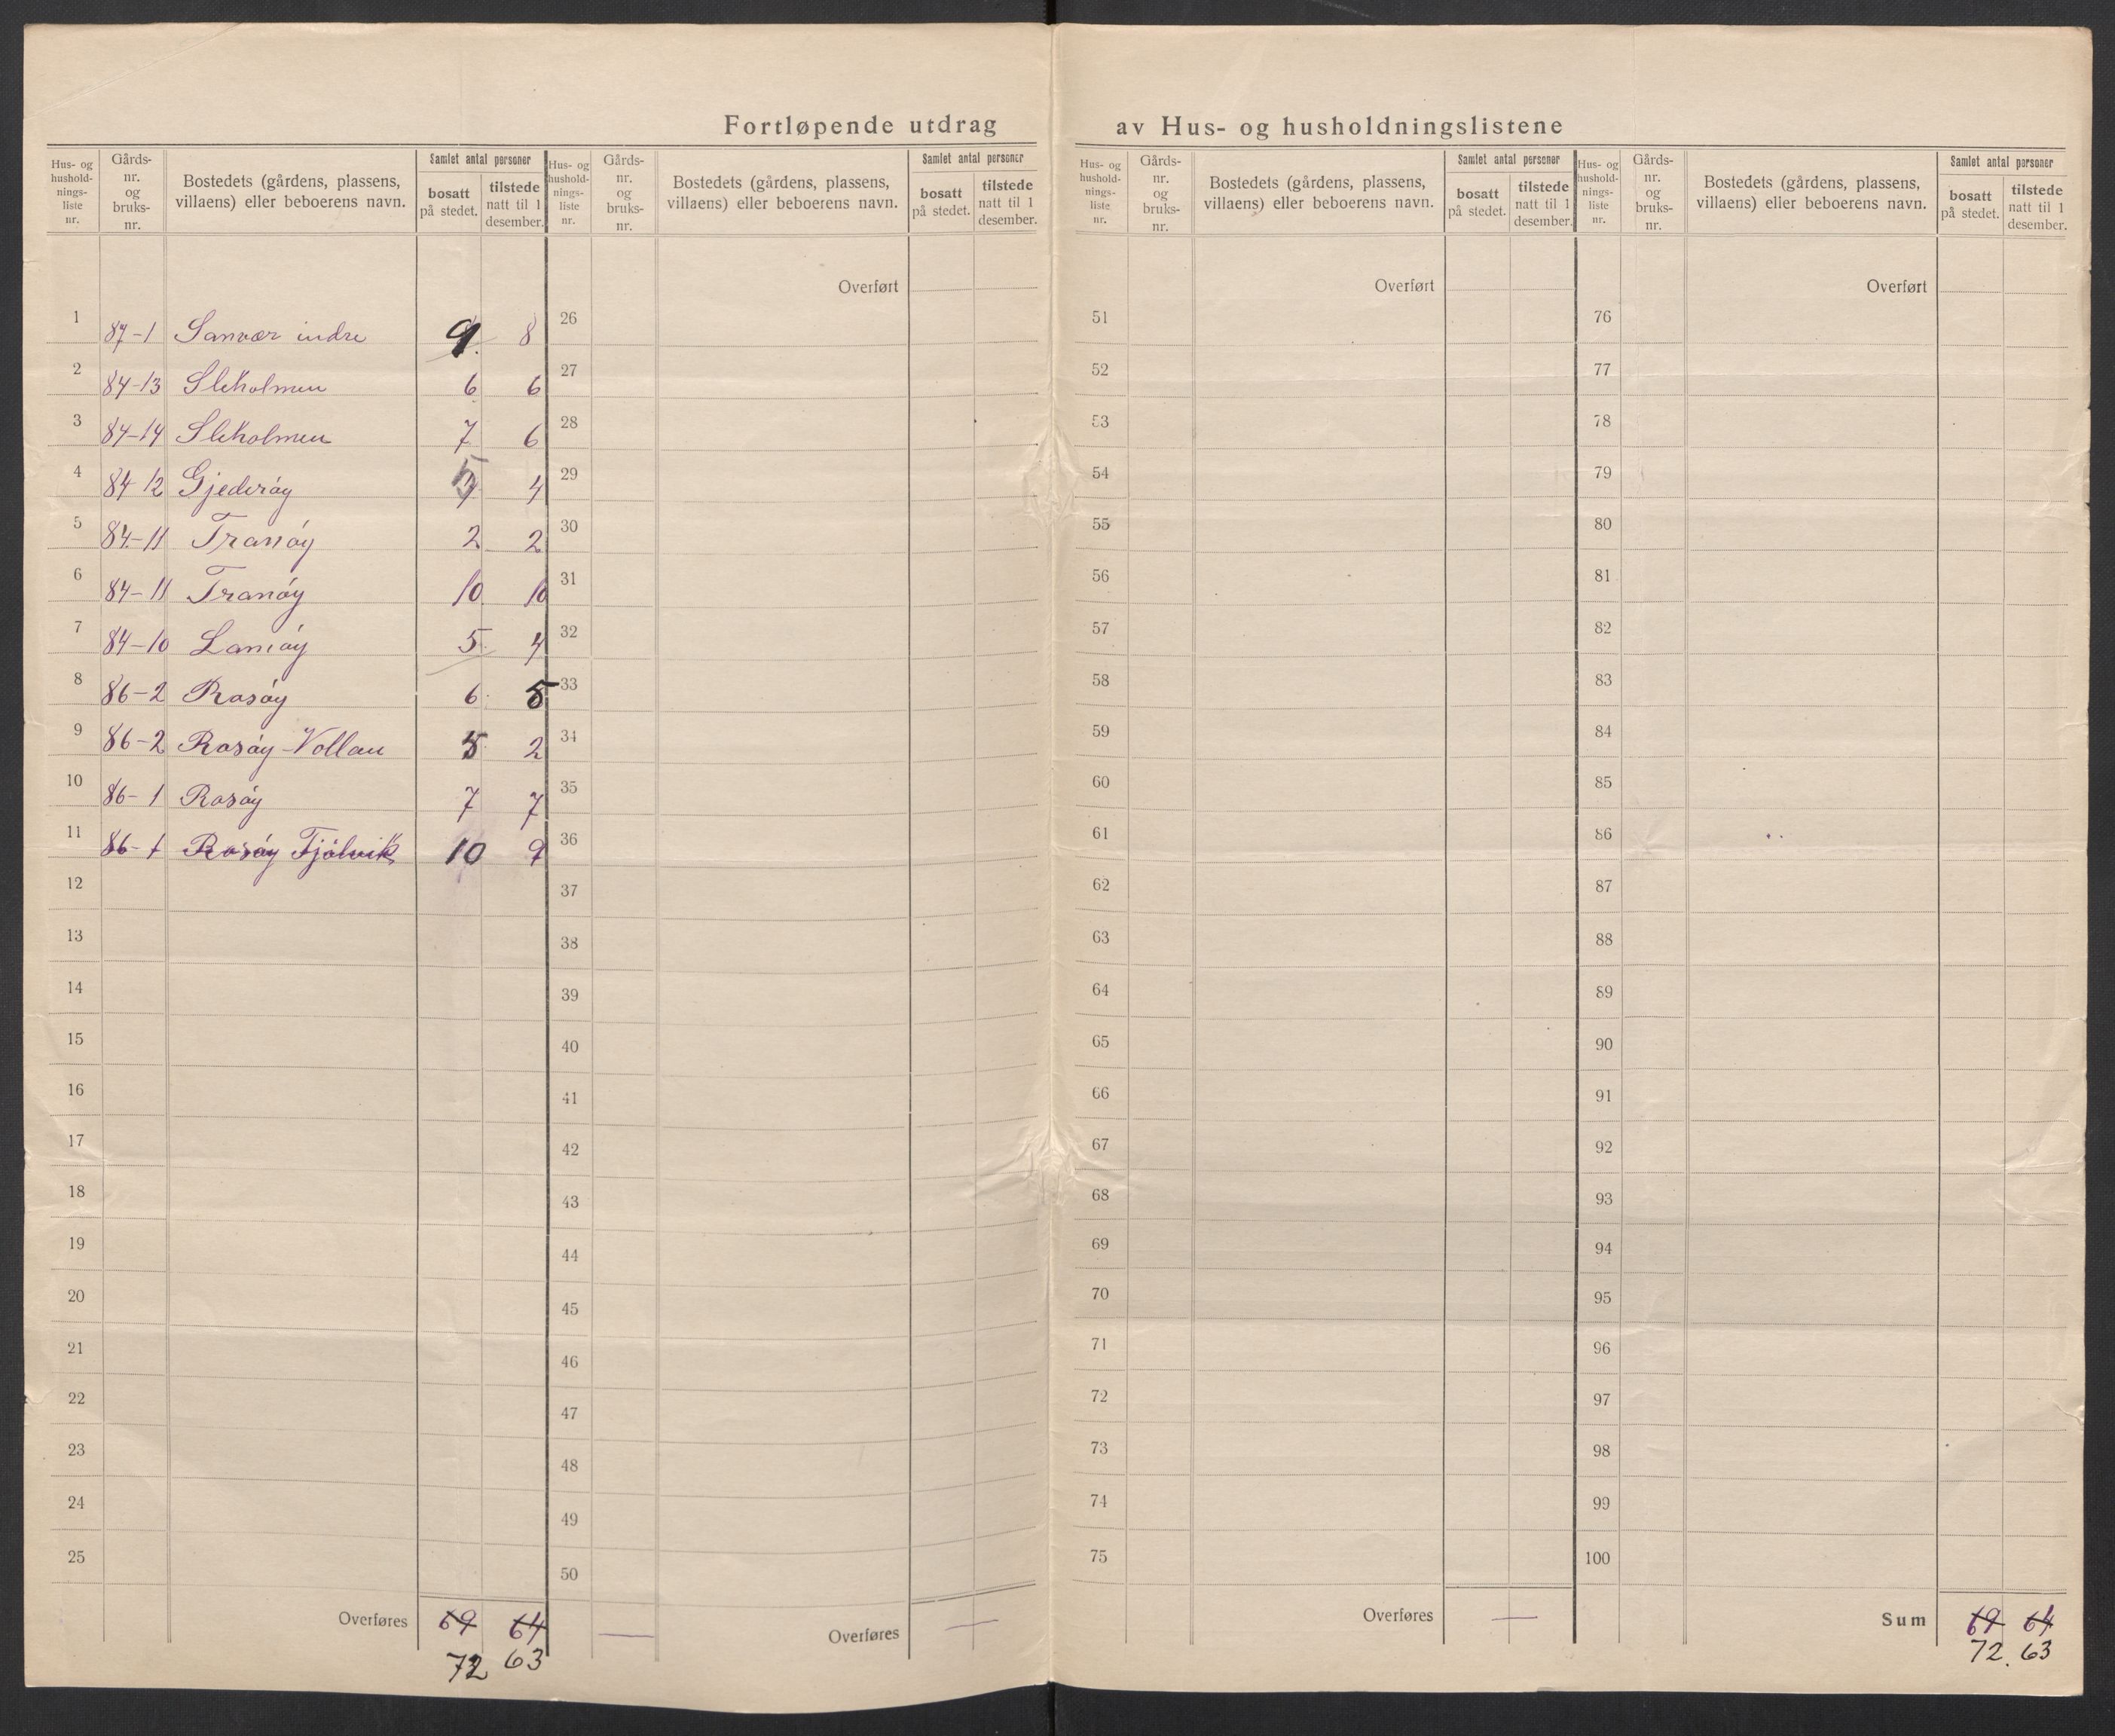 Fortløpende utdrag av Hus- og husholdningslistene
Hus- og hushold- nings- liste nr. | Gårds- nr. og bruks- nr. | Bostedets (gårdens, plassens, villaens) eller beboerens navn. | Samlet antal personer | bosatt på stedet. | tilstede natt til 1 desember.
1 87-1 Sanvær indre 9. 8
2 84-13 Slekholmen 6 6
3 84-14 Slekholmen 7 6
4 84 12 Gjederöy 5 4
5 84-11 Tranöy 2 2
6 84-11 Tranöy 10 10
7 84-10 Lamöy 5 4
8 86-2 Rosöy 6 5
9 86-2 Rosöy-Vollan 5 2
10 86-1 Rosöy 7 7
11 86-1 Rosöy Fjölvik 10 9
12
13
14
15
16
17
18
19
20
21
22
23
24
25
Overføres 69 64
72 63
Hus- og hushold- nings- liste nr. | Gårds- nr. og bruks- nr. | Bostedets (gårdens, plassens, villaens) eller beboerens navn. | Samlet antal personer | bosatt på stedet. | tilstede natt til 1 desember.
Overført
26
27
28
29
30
31
32
33
34
35
36
37
38
39
40
41
42
43
44
45
46
47
48
49
50
— Overføres —
Hus- og hushold- nings- liste nr. | Gårds- nr. og bruks- nr. | Bostedets (gårdens, plassens, villaens) eller beboerens navn. | Samlet antal personer | bosatt på stedet. | tilstede natt til 1 desember.
Overført
51
52
53
54
55
56
57
58
59
60
61
62
63
64
65
66
67
68
69
70
71
72
73
74
75
Overføres —
Hus- og hushold- nings- liste nr. | Gårds- nr. og bruks- nr. | Bostedets (gårdens, plassens, villaens) eller beboerens navn. | Samlet antal personer | bosatt på stedet. | tilstede natt til 1 desember.
Overført
76
77
78
79
80
81
82
83
84
85
86
87
88
89
90
91
92
93
94
95
96
97
98
99
100
Sum 69 64
72. 63